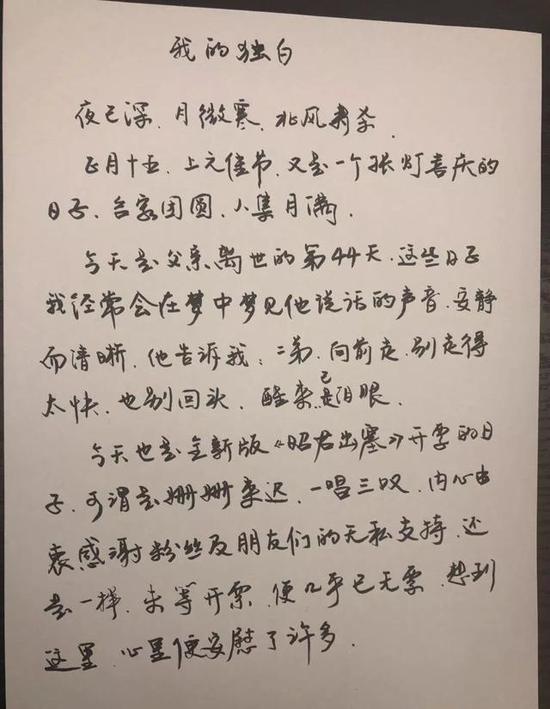 我的独白
夜已深，月微寒，北风肃杀，
正月十五，上元佳节，又是一个张灯喜庆的
日子，合家团圆，人集月满，
今天是父亲离世的第44天，这些日子
我经常会在梦中梦见他说话的声音，安静
而清晰，他告诉我：二弟，向前走，别走得
太快，也别回头，醒来已是泪眼，
今天也是全新版《昭君出塞》开票的日
子，可谓是姗姗来迟，一唱三叹，内心由
衷感谢粉丝及朋友们的无私支持，还
是一样，未等开票，便几乎已无票，想到
这里，心里便安慰了许多.